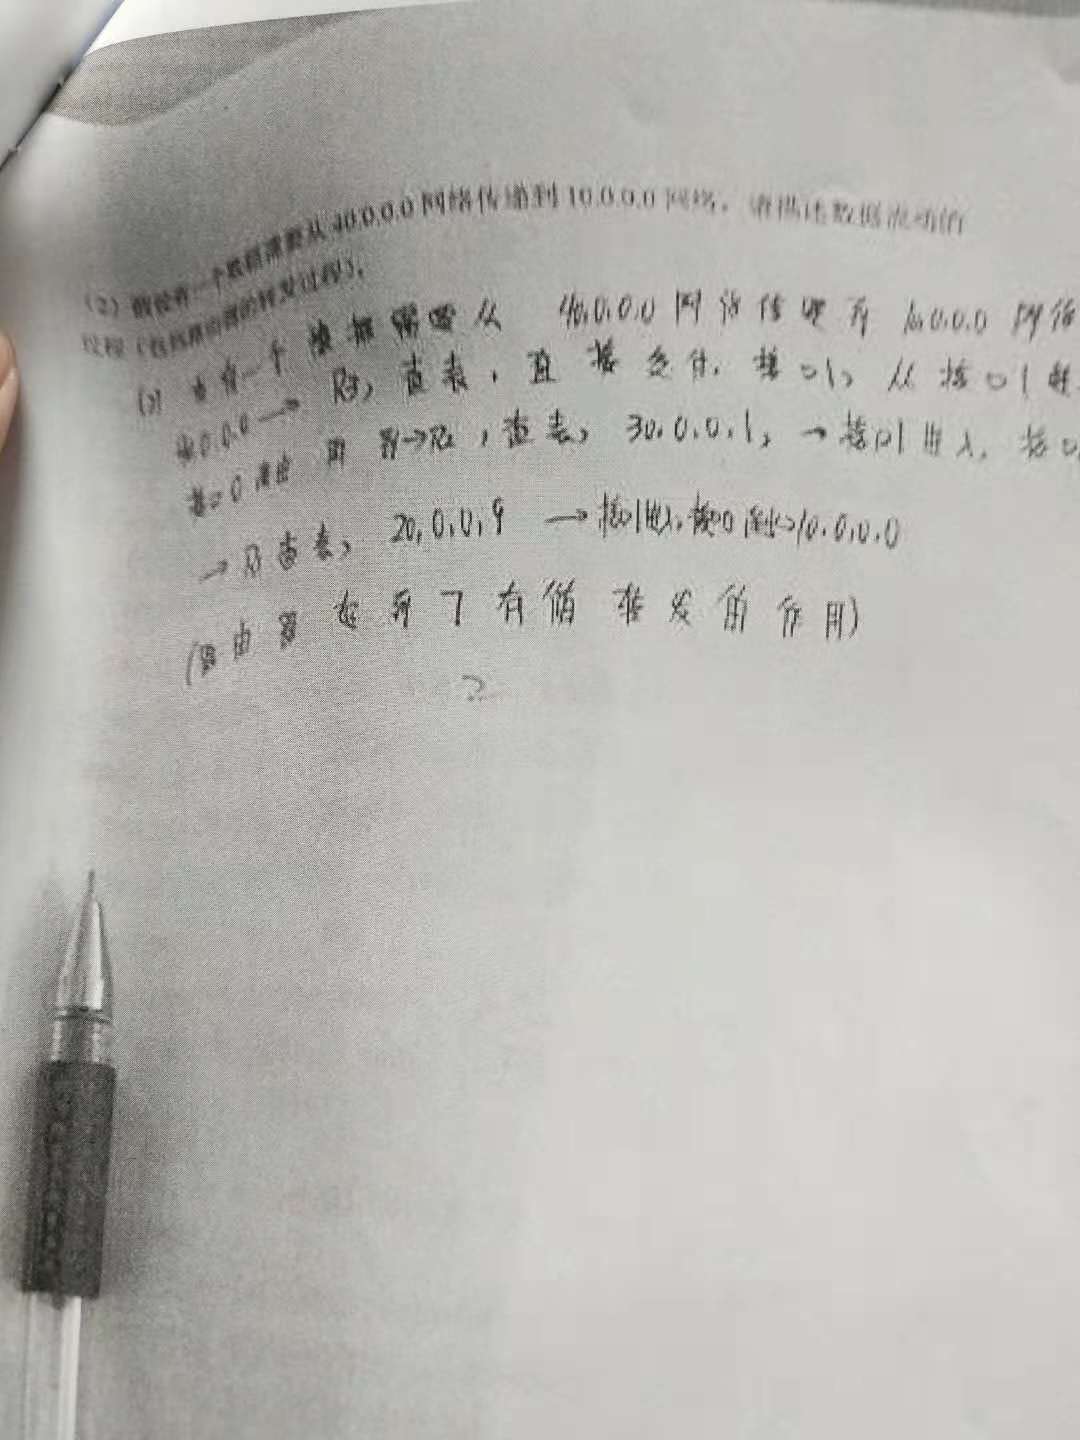 (2) 假设有一个数据需要从 40.0.0.0 网络传递到 10.0.0.0 网络，请描述数据流动的
过程（包括路由器的转发过程）。
有一个数据需要从 40.0.0.0 网络传 10.0.0.0 网络
40.0.0.0 → R3，查表，直接交付，接口1，从接口1
接口0 → R2，查表，30.0.0.1，→ 接口1进入，接口
→ 查表，20.0.0.9 → 接口1进入，接口0 10.0.0.0
(路由器 起到了存储转发的作用)
2